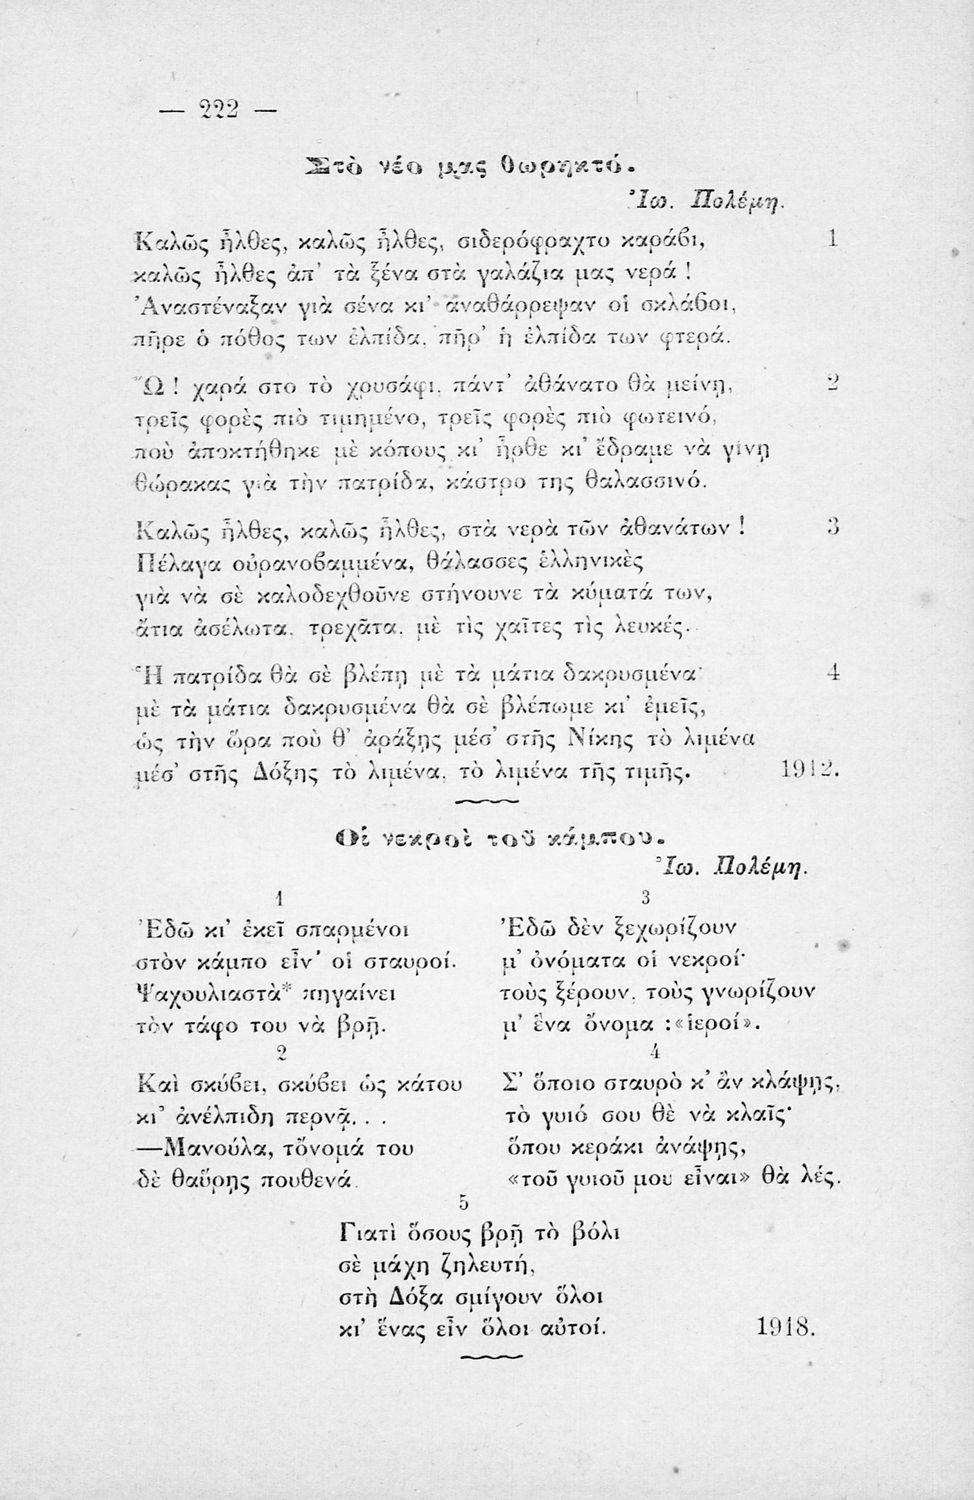 — 222 —
Στὸ νέο μας θωρηκτό.
Ἰω. Πολέμη.
Καλῶς ἦλθες, καλῶς ἦλθες, σιδερόφραχτο καράβι, 1
καλῶς ἦλθες ἀπ' τὰ ξένα στὰ γαλάζια μας νερά !
Ἀναστέναξαν γιὰ σένα κι' ἀναθάρρεψαν οἱ σκλάβοι,
πῆρε ὁ πόθος των ἐλπίδα, πῆρ' ἡ ἐλπίδα των φτερά.
Ὢ ! χαρά στο τὸ χρυσάφι, πάντ' ἀθάνατο θὰ μείνῃ, 2
τρεῖς φορὲς πιὸ τιμημένο, τρεῖς φορὲς πιὸ φωτεινό,
ποὺ ἀποκτήθηκε μὲ κόπους κι' ἦρθε κι' ἔδραμε νὰ γίνῃ
θώρακας γιὰ τὴν πατρίδα, κάστρο της θαλασσινό.
Καλῶς ἦλθες, καλῶς ἦλθες, στὰ νερὰ τῶν ἀθανάτων ! 3
Πέλαγα οὐρανοβαμμένα, θάλασσες ἑλληνικὲς
γιὰ νὰ σὲ καλοδεχθοῦνε στήνουνε τὰ κύματά των,
ἄτια ἀσέλωτα, τρεχᾶτα, μὲ τὶς χαῖτες τὶς λευκές.
Ἡ πατρίδα θὰ σὲ βλέπῃ μὲ τὰ μάτια δακρυσμένα· 4
μὲ τὰ μάτια δακρυσμένα θὰ σὲ βλέπωμε κι' ἐμεῖς,
ὡς τὴν ὥρα ποὺ θ' ἀράξῃς μέσ' στῆς Νίκης τὸ λιμένα
μέσ' στῆς Δόξης τὸ λιμένα, τὸ λιμένα τῆς τιμῆς. 1912.
Οἱ νεκροὶ τοῦ κάμπου.
Ἰω. Πολέμη.
1
Ἐδῶ κι' ἐκεῖ σπαρμένοι
στὸν κάμπο εἶν' οἱ σταυροί.
Ψαχουλιαστὰ* πηγαίνει
τὸν τάφο του νὰ βρῇ.
2
Καὶ σκύβει, σκύβει ὡς κάτου
κι' ἀνέλπιδη περνᾷ. . .
—Μανούλα, τὄνομά του
δὲ θαὕρῃς πουθενά.
3
Ἐδῶ δὲν ξεχωρίζουν
μ' ὀνόματα οἱ νεκροί·
τοὺς ξέρουν, τοὺς γνωρίζουν
μ' ἕνα ὄνομα :«ἱεροί».
4
Σ' ὅποιο σταυρὸ κ' ἂν κλάψῃς,
τὸ γυιό σου θὲ νὰ κλαῖς·
ὅπου κεράκι ἀνάψῃς,
«τοῦ γυιοῦ μου εἶναι» θὰ λές.
5
Γιατὶ ὅσους βρῇ τὸ βόλι
σὲ μάχη ζηλευτή,
στὴ Δόξα σμίγουν ὅλοι
κι' ἕνας εἶν ὅλοι αὐτοί. 1918.